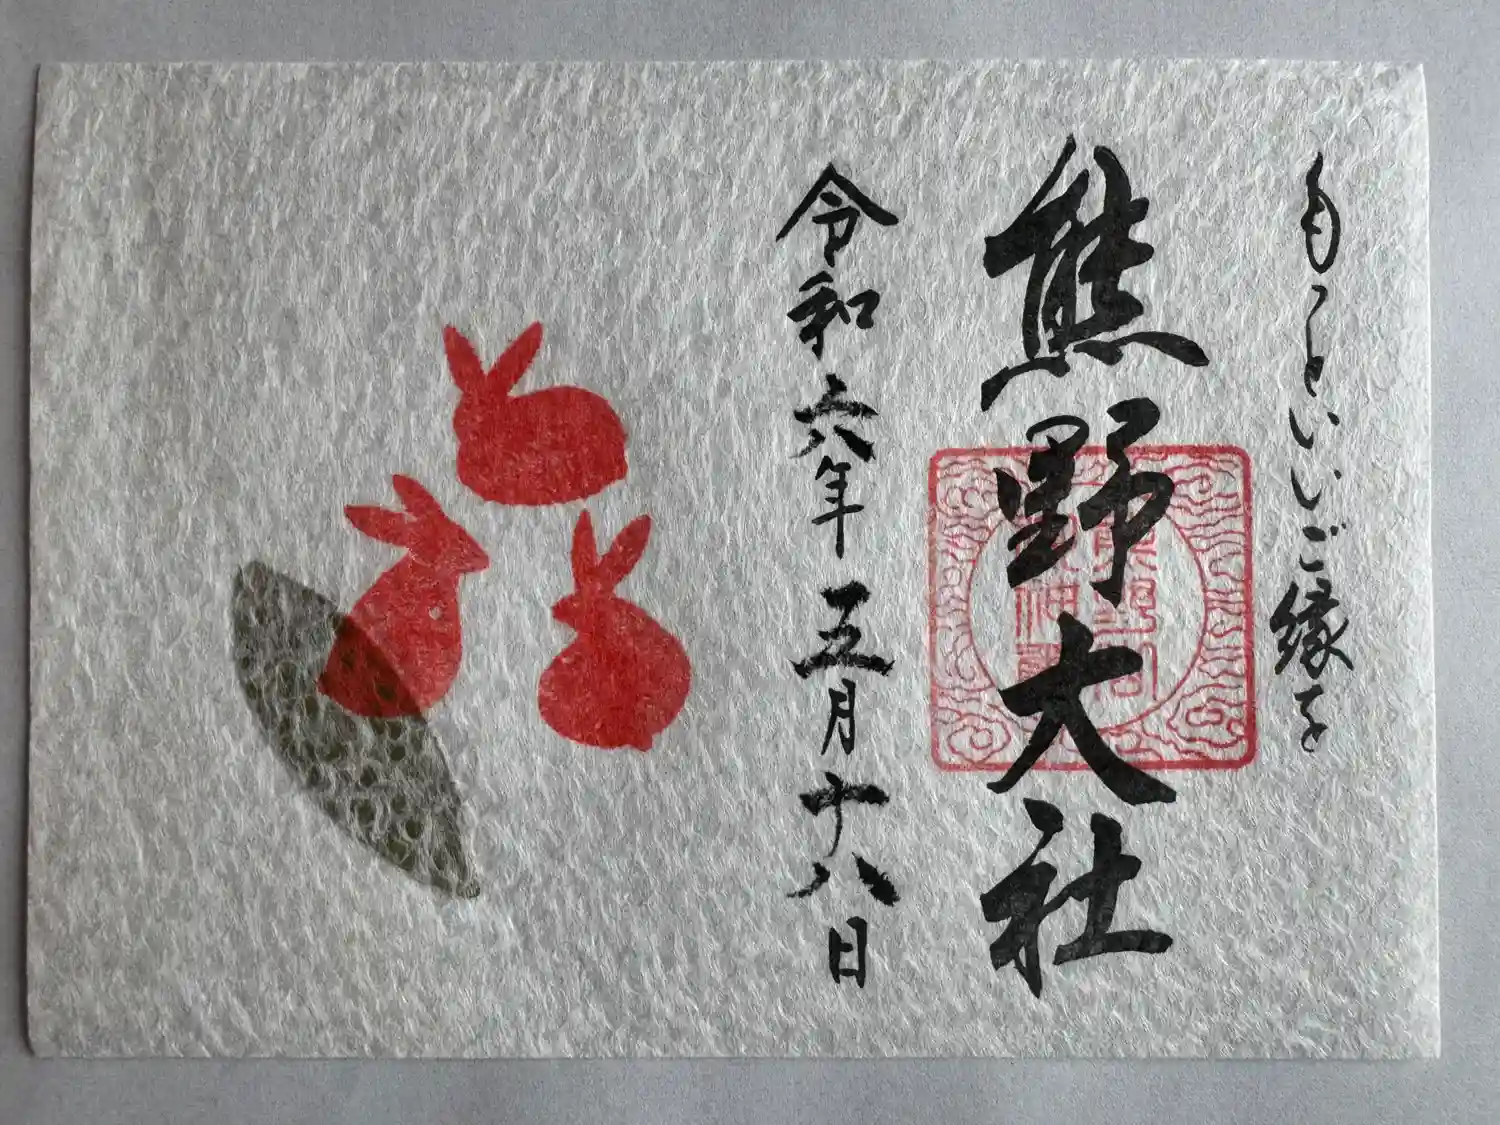 もっといいご縁を
熊野大社
令和六年五月十八日